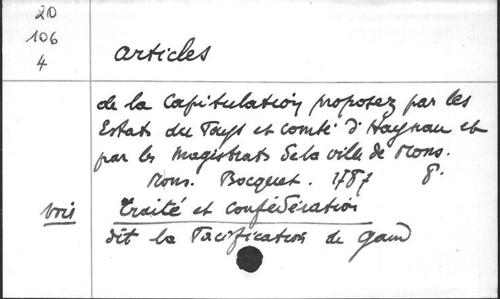 20
106
4
articles
de la Capitulation proposez par les
Estats du Pays et comté d'Haynau et
par les Magistrats de la ville de Mons.
Mons. Bocquet. 1787 8.
Vois Traité et confédération
dit la Pacification de Gand